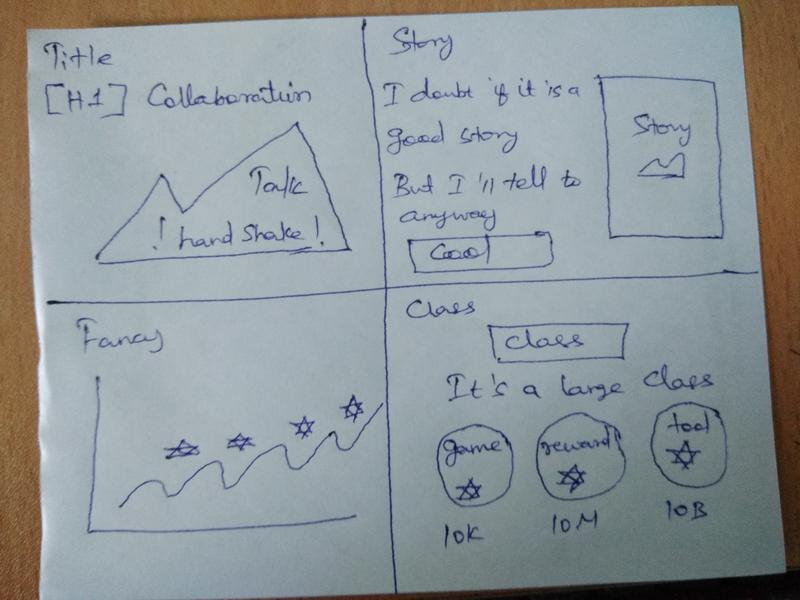 Title
[H1] Collaboration
Talk
! hand shake!
Story
I doubt if it is a
good story
But I'll tell to
anyway
Cool
Story
Fancy
Class
Class
It's a large class
game
reward
tool
10K
10M
10B